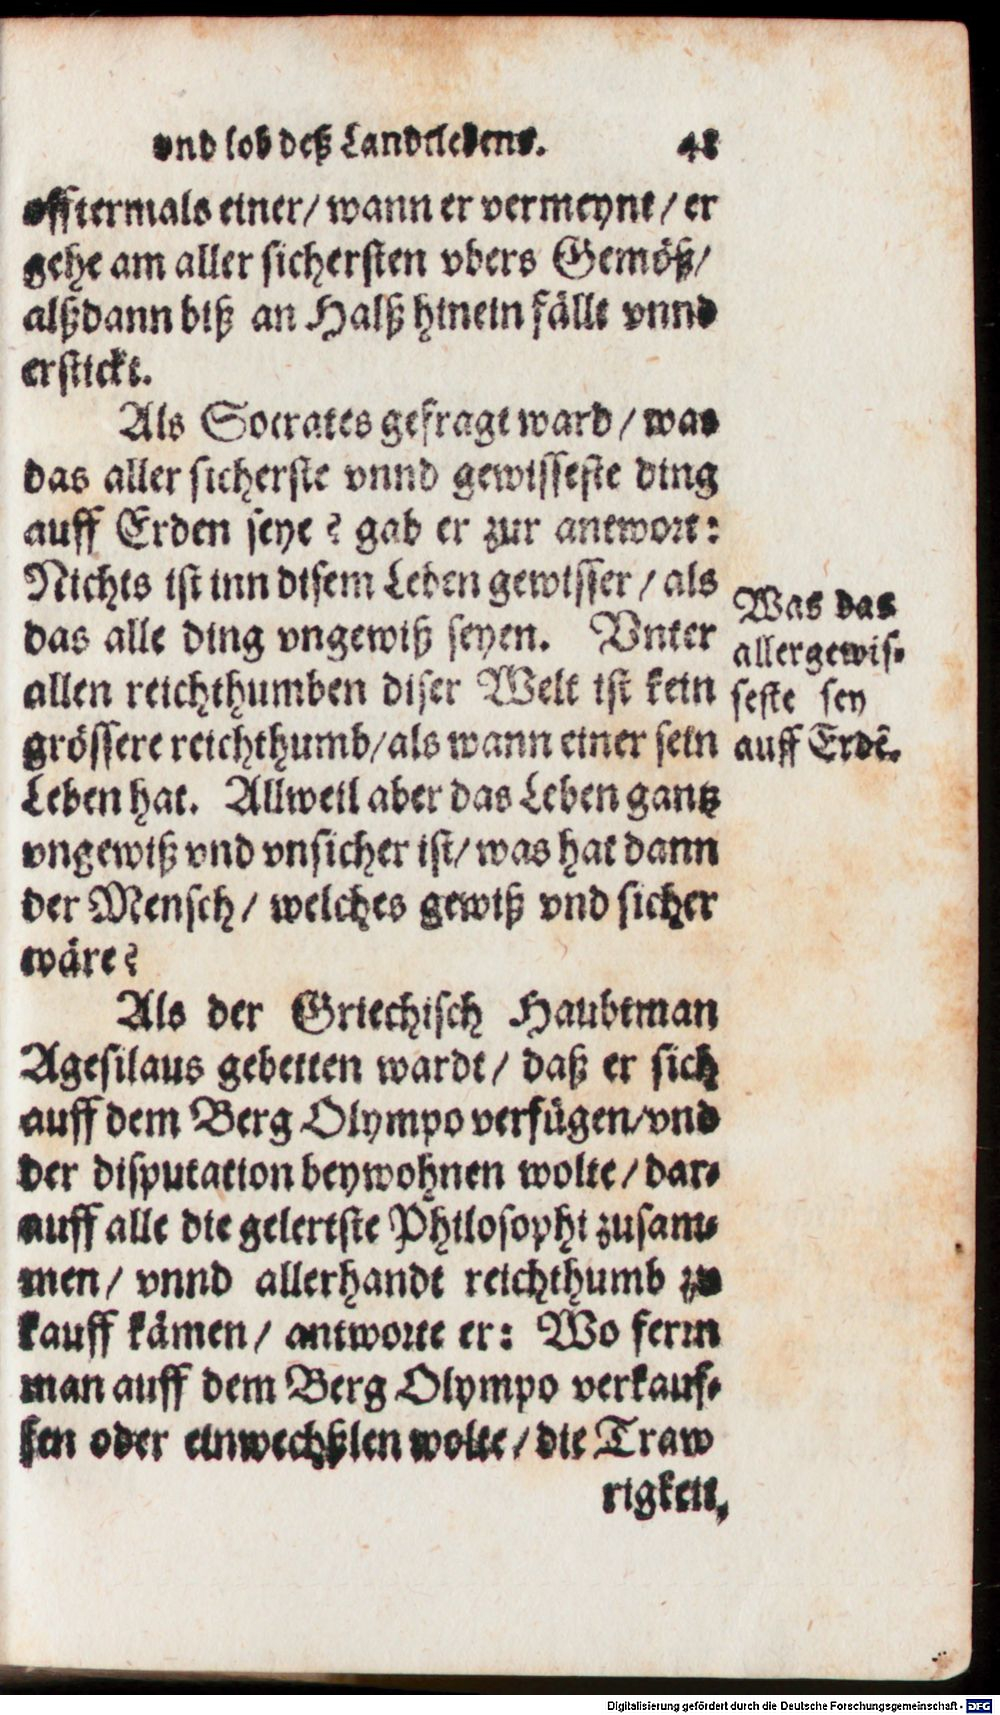 vnd lob deß Landtlebens. 48
offtermals einer/ wann er vermeynt/ er
gehe am aller sichersten vbers Gemöß/
alßdann biß an Halß hinein fällt vnnd
erstickt.
Als Socrates gefragt ward/ was
das aller sicherste vnnd gewisseste ding
auff Erden seye? gab er zur antwort:
Nichts ist inn disem Leben gewisser/ als
das alle ding vngewiß seyen. Vnter
allen reichthumben diser Welt ist kein
grössere reichthumb/als wann einer sein
Leben hat. Allweil aber das Leben gantz
vngewiß vnd vnsicher ist/ was hat dann
der Mensch/ welches gewiß vnd sicher
wäre?
Was das
allergewis-
seste sey
auff Erdē.
Als der Griechisch Haubtman
Agesilaus gebetten wardt/ daß er sich
auff dem Berg Olympo verfügen/vnd
der disputation beywohnen wolte/ dar-
auff alle die gelertste Philosophi zusam-
men/ vnnd allerhandt reichthumb zu
kauff kämen/ antworte er: Wo ferrn
man auff dem Berg Olympo verkauf-
fen oder einwechßlen wolte/ die Traw
rigkeit,
Digitalisierung gefördert durch die Deutsche Forschungsgemeinschaft - DFG